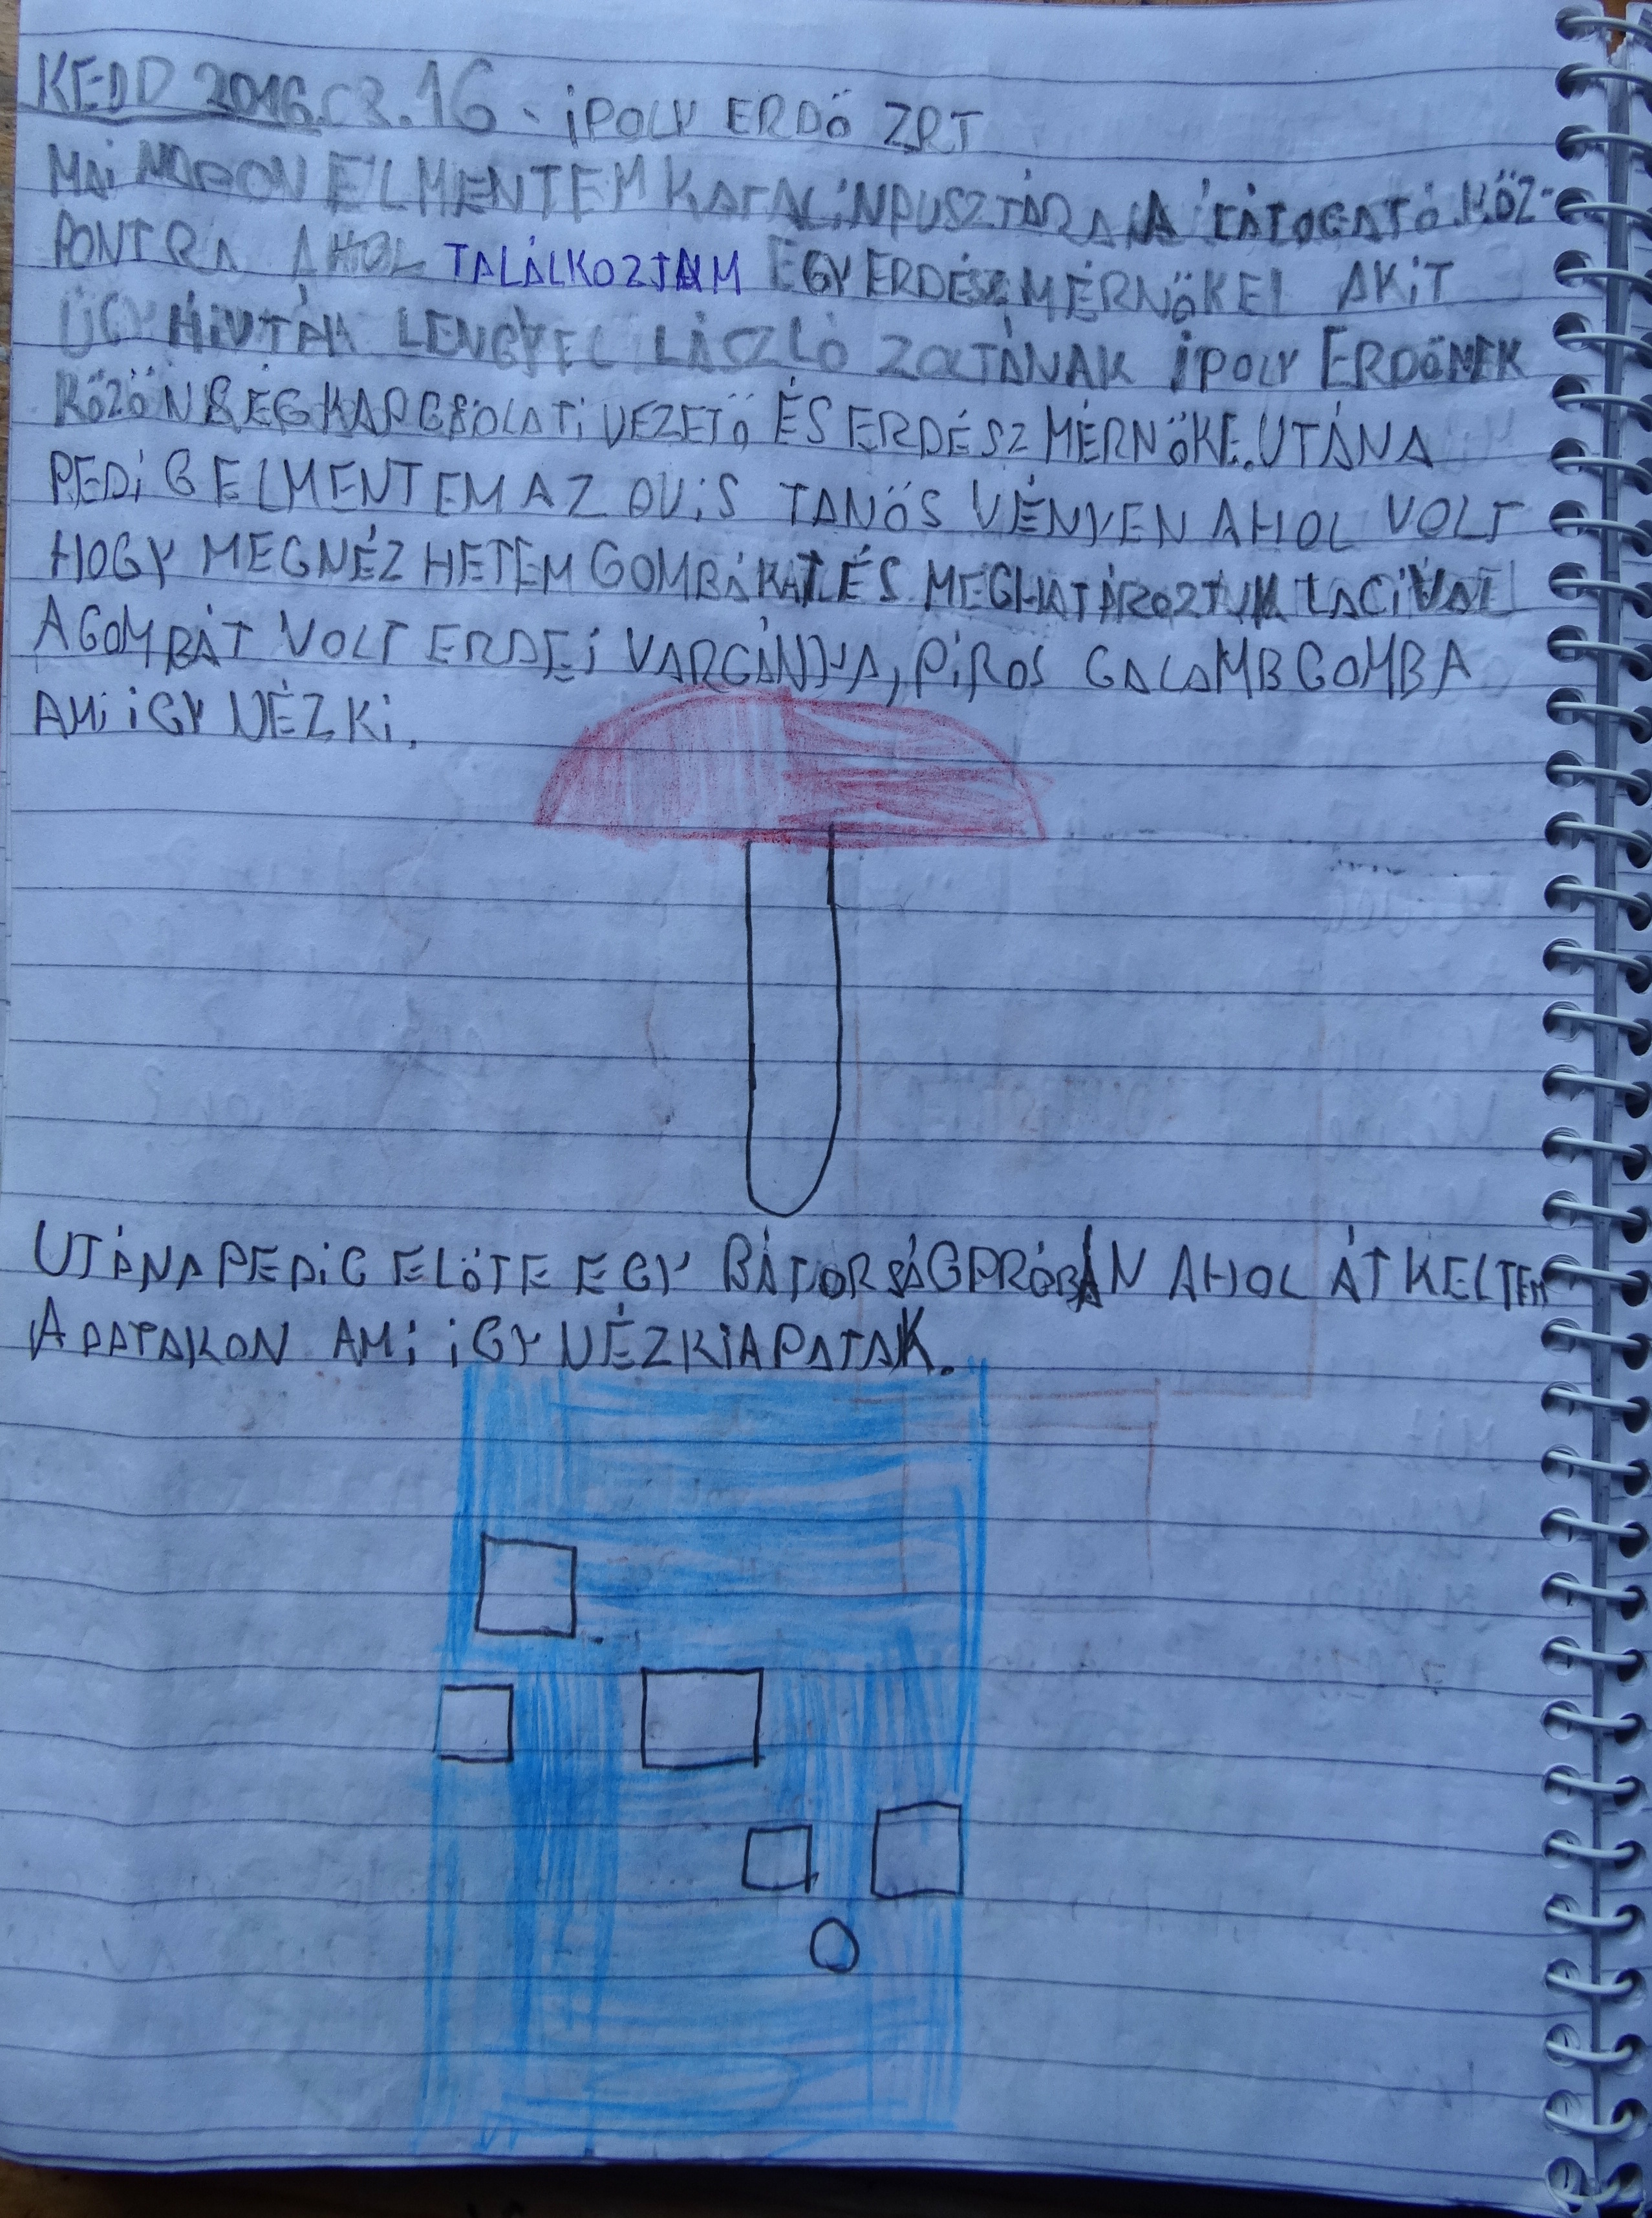 KEDD 2016.03.16 - iPOLY ERDŐ ZRT
MAi NAPON ELMENTEM KATALiNPUSZTÁRA A LÁTOGATÓ KÖZ-
PONTRA AHOL TALÁLKOZTAM EGY ERDÉSZMÉRNÖKEL AKiT
ÚGY HíVTÁK LENGYEL LÁSZLÓ ZOLTÁNAK iPOLY ERDŐNEK
KÖZÖNSÉGKAPCSOLATi VEZETŐ ÉS ERDÉSZ MÉRNÖKE. UTÁNA
PEDiG ELMENTEM AZ OViS TANÖSVÉNYEN AHOL VOLT
HOGY MEGNÉZHETEM GOMBÁKAT ÉS MEGHATÁROZTUK LACiVAL
A GOMBÁT VOLT ERDEi VARGÁNYA, PiROS GALAMBGOMBA
AMi iGY NÉZKi.
UTÁNA PEDiG ELÖTE EGY BÁTORSÁGPRÓBÁN AHOL ÁTKELTEM
A PATAKON AMi iGY NÉZKi A PATAK.